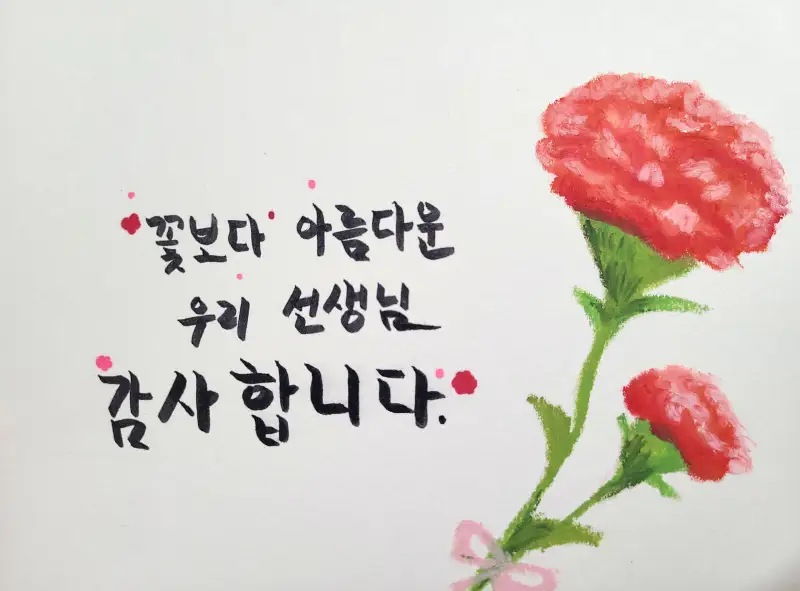 꽃보다 아름다운
우리 선생님
감사합니다.